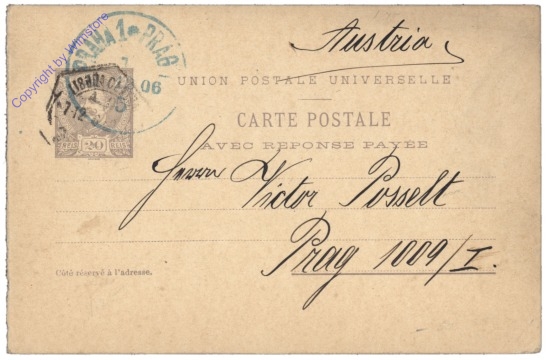 Austria
UNION POSTALE UNIVERSELLE
CARTE POSTALE
AVEC REPONSE PAYÉE
Herrn Victor Posselt
Prag 1009/I.
Côté réservé à l'adresse.
PRAHA 1 PRAG
06
20
REIS
Copyright by Winstore